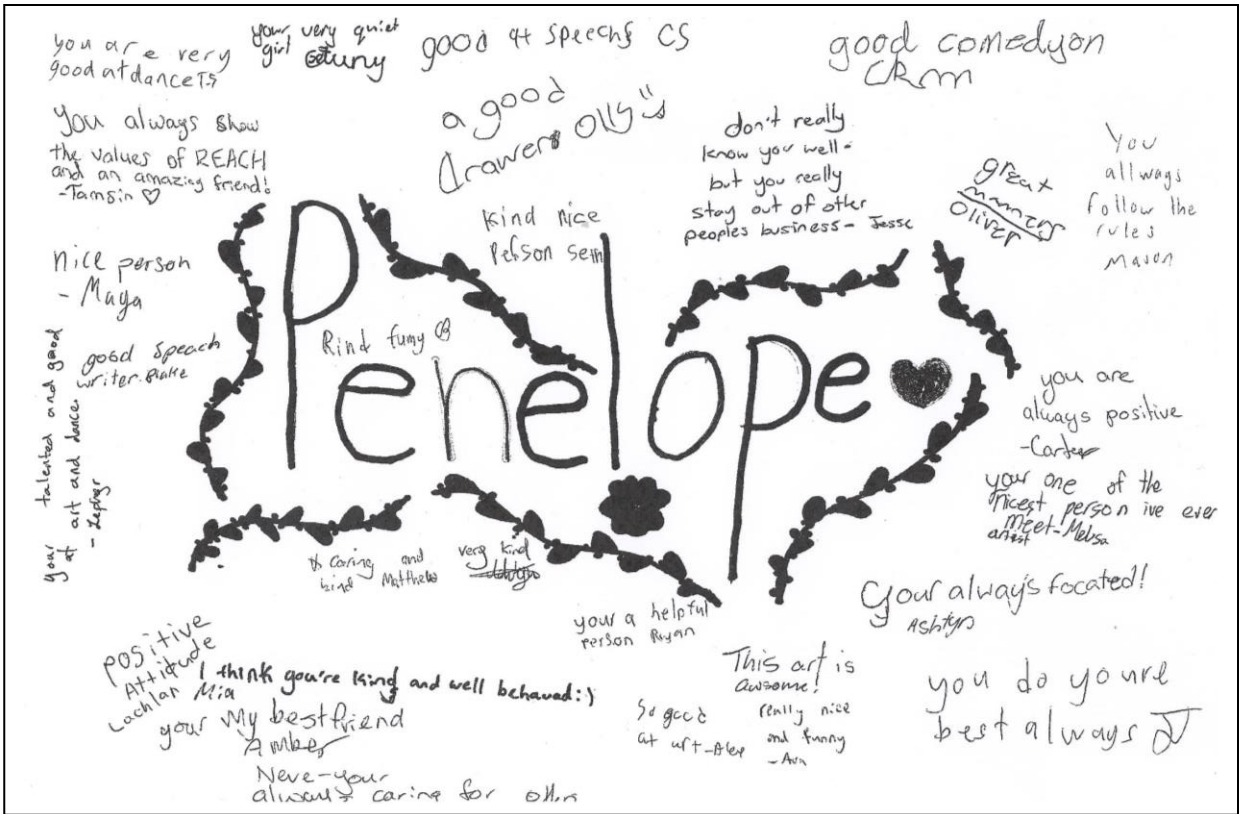 you are very
good at dance TS
your very quiet
girl
good at speechs CS
good comedyon
CRM
You always show
the values of REACH
and an amazing friend!
-Tamsin ♡
a good
drawer Olly
don't really
know you well-
but you really
stay out of other
peoples business- Jesse
great
manners
Oliver
You
allways
follow the
rules
Mason
kind nice
Person Seth
nice person
- Maya
good Speach
writer-Blake
your talented and good
at art and dance.
- Zephyr
Penelope
kind funny CB
you are
always positive
-Carter
your one of the
nicest person ive ever
meet-Melisa
artist
caring and
kind Matthew
very kind
your a helpful
Person Ryan
Your always focated!
Ashtyn
positive
Attitude
Lachlan
I think you're kind and well behaved:)
Mia
your My bestfriend
Amber
Neve-your
always caring for others
This art is
awsome!
So good
at art-Alex
really nice
and funny
- Ava
you do youre
best always